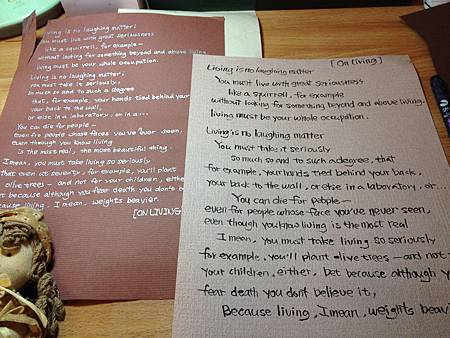 living is no laughing matter:
you must live with great seriousness
like a squirrell, for example—
without looking for something beyond and above living
living must be your whole occupation.
Living is no laughing matter:
you must take it seriously
so much so and to such a degree
that, for example, your hands tied behind your
your back to the wall,
or else in a laboratory, or in a...
You can die for people—
even for people whose faces you've never seen,
even though you know living
is the most real, the most beautiful thing.
I mean, you must take living so seriously
that even at seventy, for example, you'll plant
olive trees— and not for your children, either
but because although you fear death you don't be
cause living, I mean, weights heavier.
[ON LIVING
[On Living]
Living is no laughing matter
You must live with great seriousness
like a squirrel, for example
without looking for something beyond and above living.
living must be your whole occupation.
Living is no laughing matter
You must take it seriously
so much so and to such a degree, that
for example, your hands tied behind your back,
your back to the wall, or else in a laboratory, or...
You can die for people—
even for people whose face you've never seen,
even though you know living is the most real
I mean, you must take living so seriously
for example, you'll plant olive trees— and not
your children, either, bet because although y
fear death you don't believe it,
Because living, I mean, weights heavi